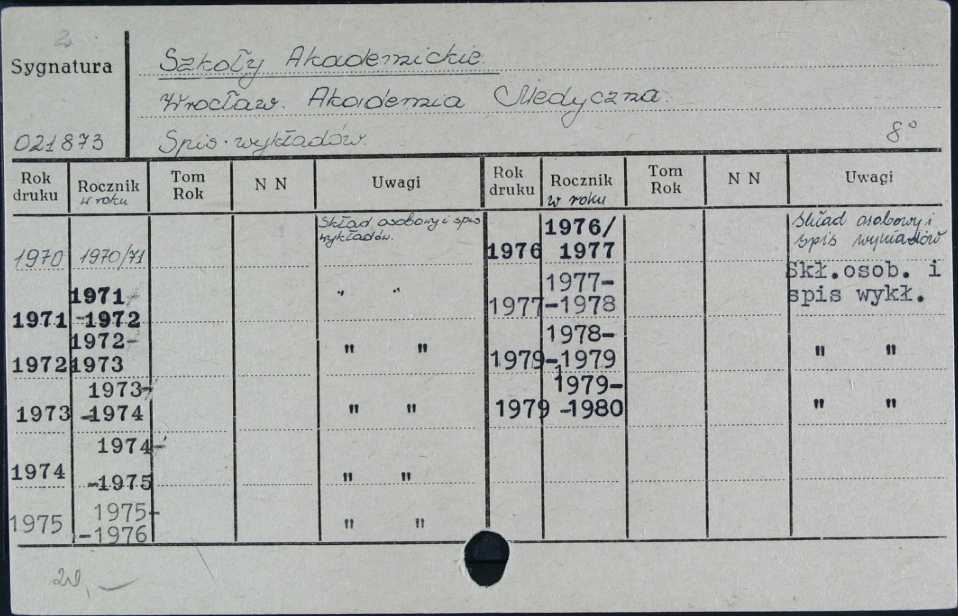 2
Sygnatura
021873
Szkoły Akademickie.
Wrocław. Akademia Medyczna.
Spis wykładów.
8°
Rok druku Rocznik w roku Tom Rok N N Uwagi Rok druku Rocznik w roku Tom Rok N N Uwagi
1970 1970/71 Skład osobowy i spis wykładów.
1971 1971-1972 " "
1972 1972-1973 " "
1973 1973-1974 " "
1974 1974-1975 " "
1975 1975-1976 " "
1976 1976/1977 Skład osobowy i spis wykładów
1977 1977-1978 Skł.osob. i spis wykł.
1979 1978-1979 " "
1979 1979-1980 " "